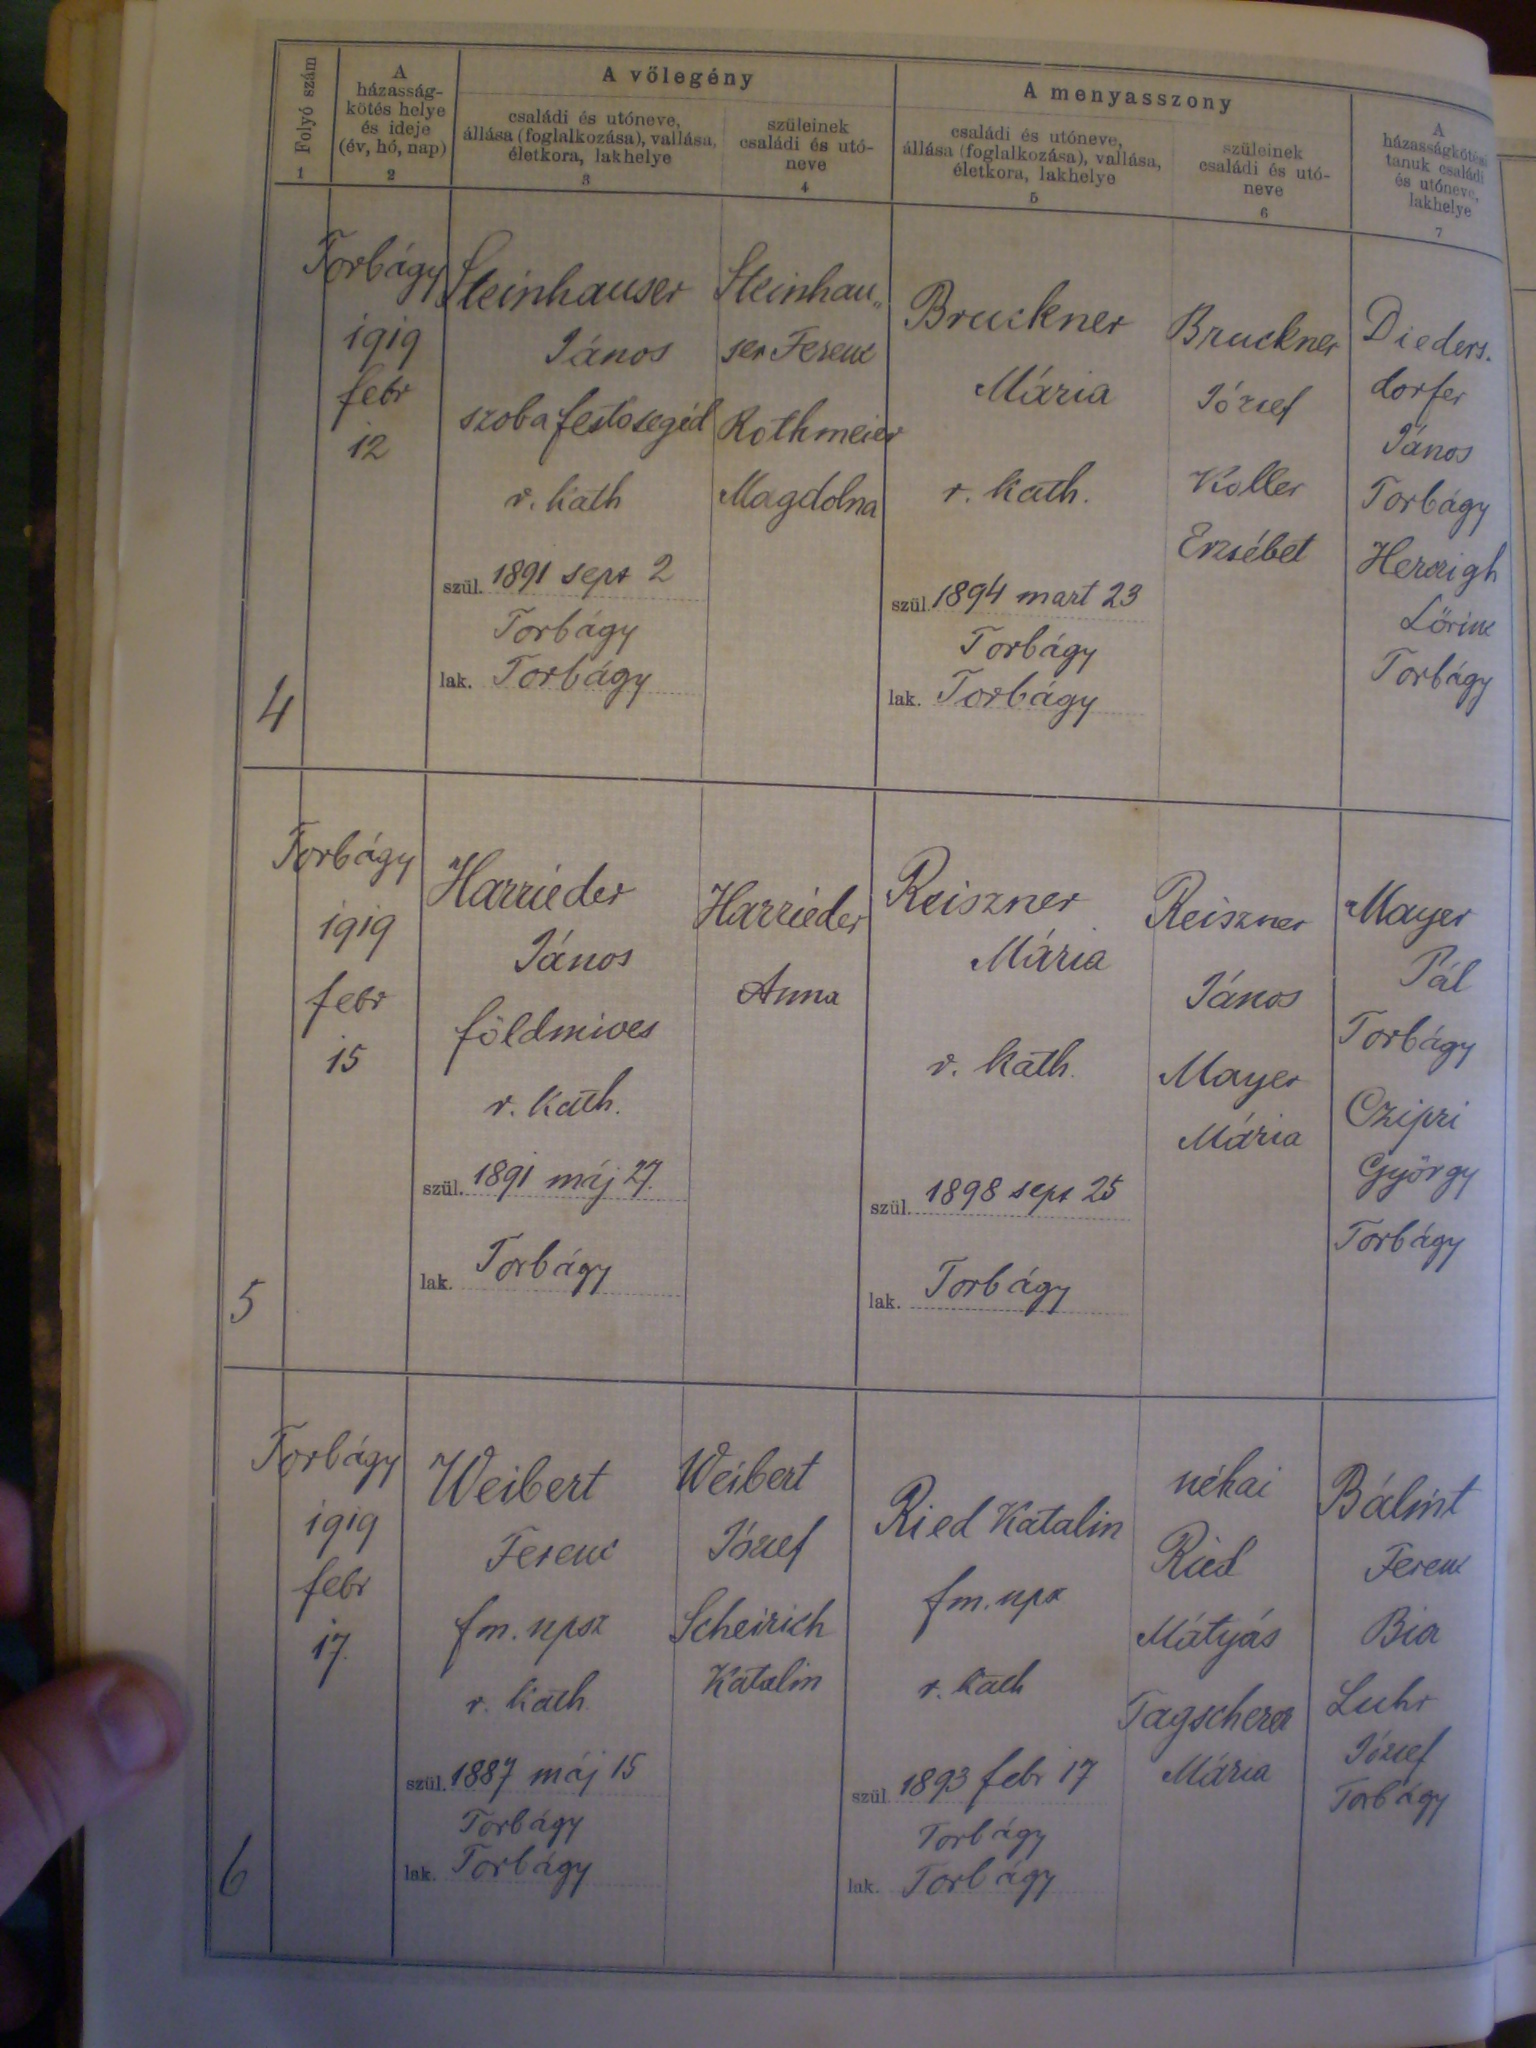 Folyó szám
A
házasság-
kötés helye
és ideje
(év, hó, nap)
A vőlegény
családi és utóneve,
állása (foglalkozása), vallása,
életkora, lakhelye
szüleinek
családi és utó-
neve
A menyasszony
családi és utóneve,
állása (foglalkozása), vallása,
életkora, lakhelye
szüleinek
családi és utó-
neve
A
házasságkötési
tanuk családi
és utóneve,
lakhelye
1
2
3
4
5
6
7
4
Torbágy
1919
febr
12
Steinhauser
János
szobafestősegéd
r. kath
szül. 1891 sept 2
Torbágy
lak. Torbágy
Steinhau„
ser Ferenc
Rothmeier
Magdolna
Bruckner
Mária
r. kath.
szül. 1894 mart 23
Torbágy
lak. Torbágy
Bruckner
József
Koller
Erzsébet
Dieders.
dorfer
János
Torbágy
Herrigh
Lőrinc
Torbágy
5
Torbágy
1919
febr
15
Harrieder
János
földmives
r. kath.
szül. 1891 máj 27.
lak. Torbágy
Harrieder
Anna
Reiszner
Mária
r. kath.
szül. 1898 sept 25
lak. Torbágy
Reiszner
János
Mayer
Mária
Mayer
Pál
Torbágy
Czipri
György
Torbágy
6
Torbágy
1919
febr
17.
Weibert
Ferenc
fm. npsz
r. kath.
szül. 1887 máj 15
Torbágy
lak. Torbágy
Weibert
József
Scheirich
Katalin
Ried Katalin
fm. npsz
r. kath
szül. 1893 febr 17
Torbágy
lak. Torbágy
néhai
Ried
Mátyás
Tagscherer
Mária
Bálint
Ferenc
Bia
Luhr
József
Torbágy